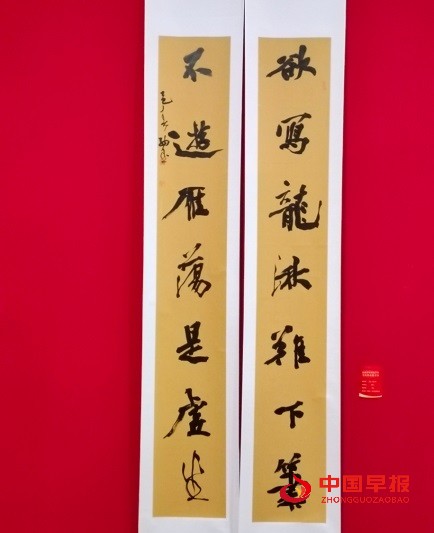 欲寫龍湫難下筆
不遊雁蕩是虛生
中国早报
ZHONGGUOZAOBAO